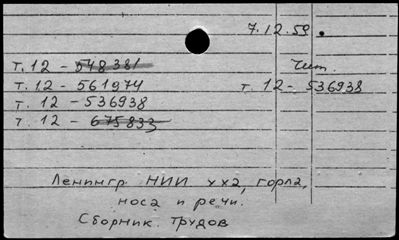 7.12.59.
т. 12 - 548381 Чит.
т. 12 - 561974 т. 12 - 536938
т. 12 - 536938
т. 12 - 675833
Ленингр НИИ уха, горла,
носа и речи.
Сборник трудов